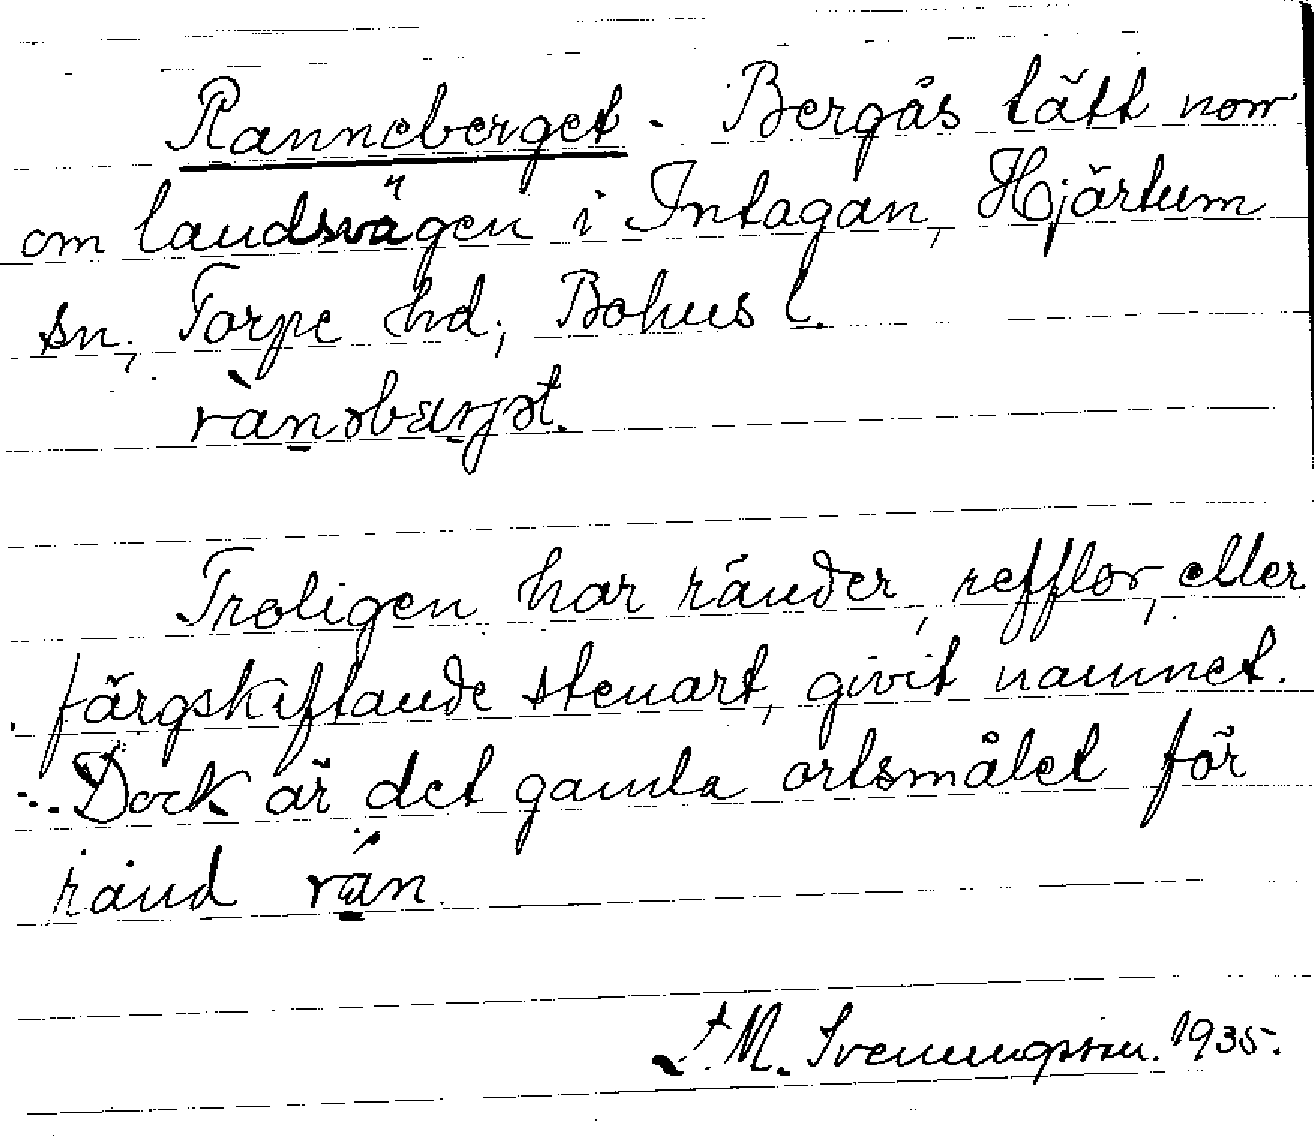 Ranneberget - Bergås tätt norr
om landsvägen i Intagan, Hjärtum
sn, Torpe hd, Bohus l.
rànəbærjət.
Troligen har ränder, refflor, eller
färgskiftande stenart, givit namnet.
Dock är det gamla ortsmålet för
rand rán
L.M. Svenungsson. 1935.